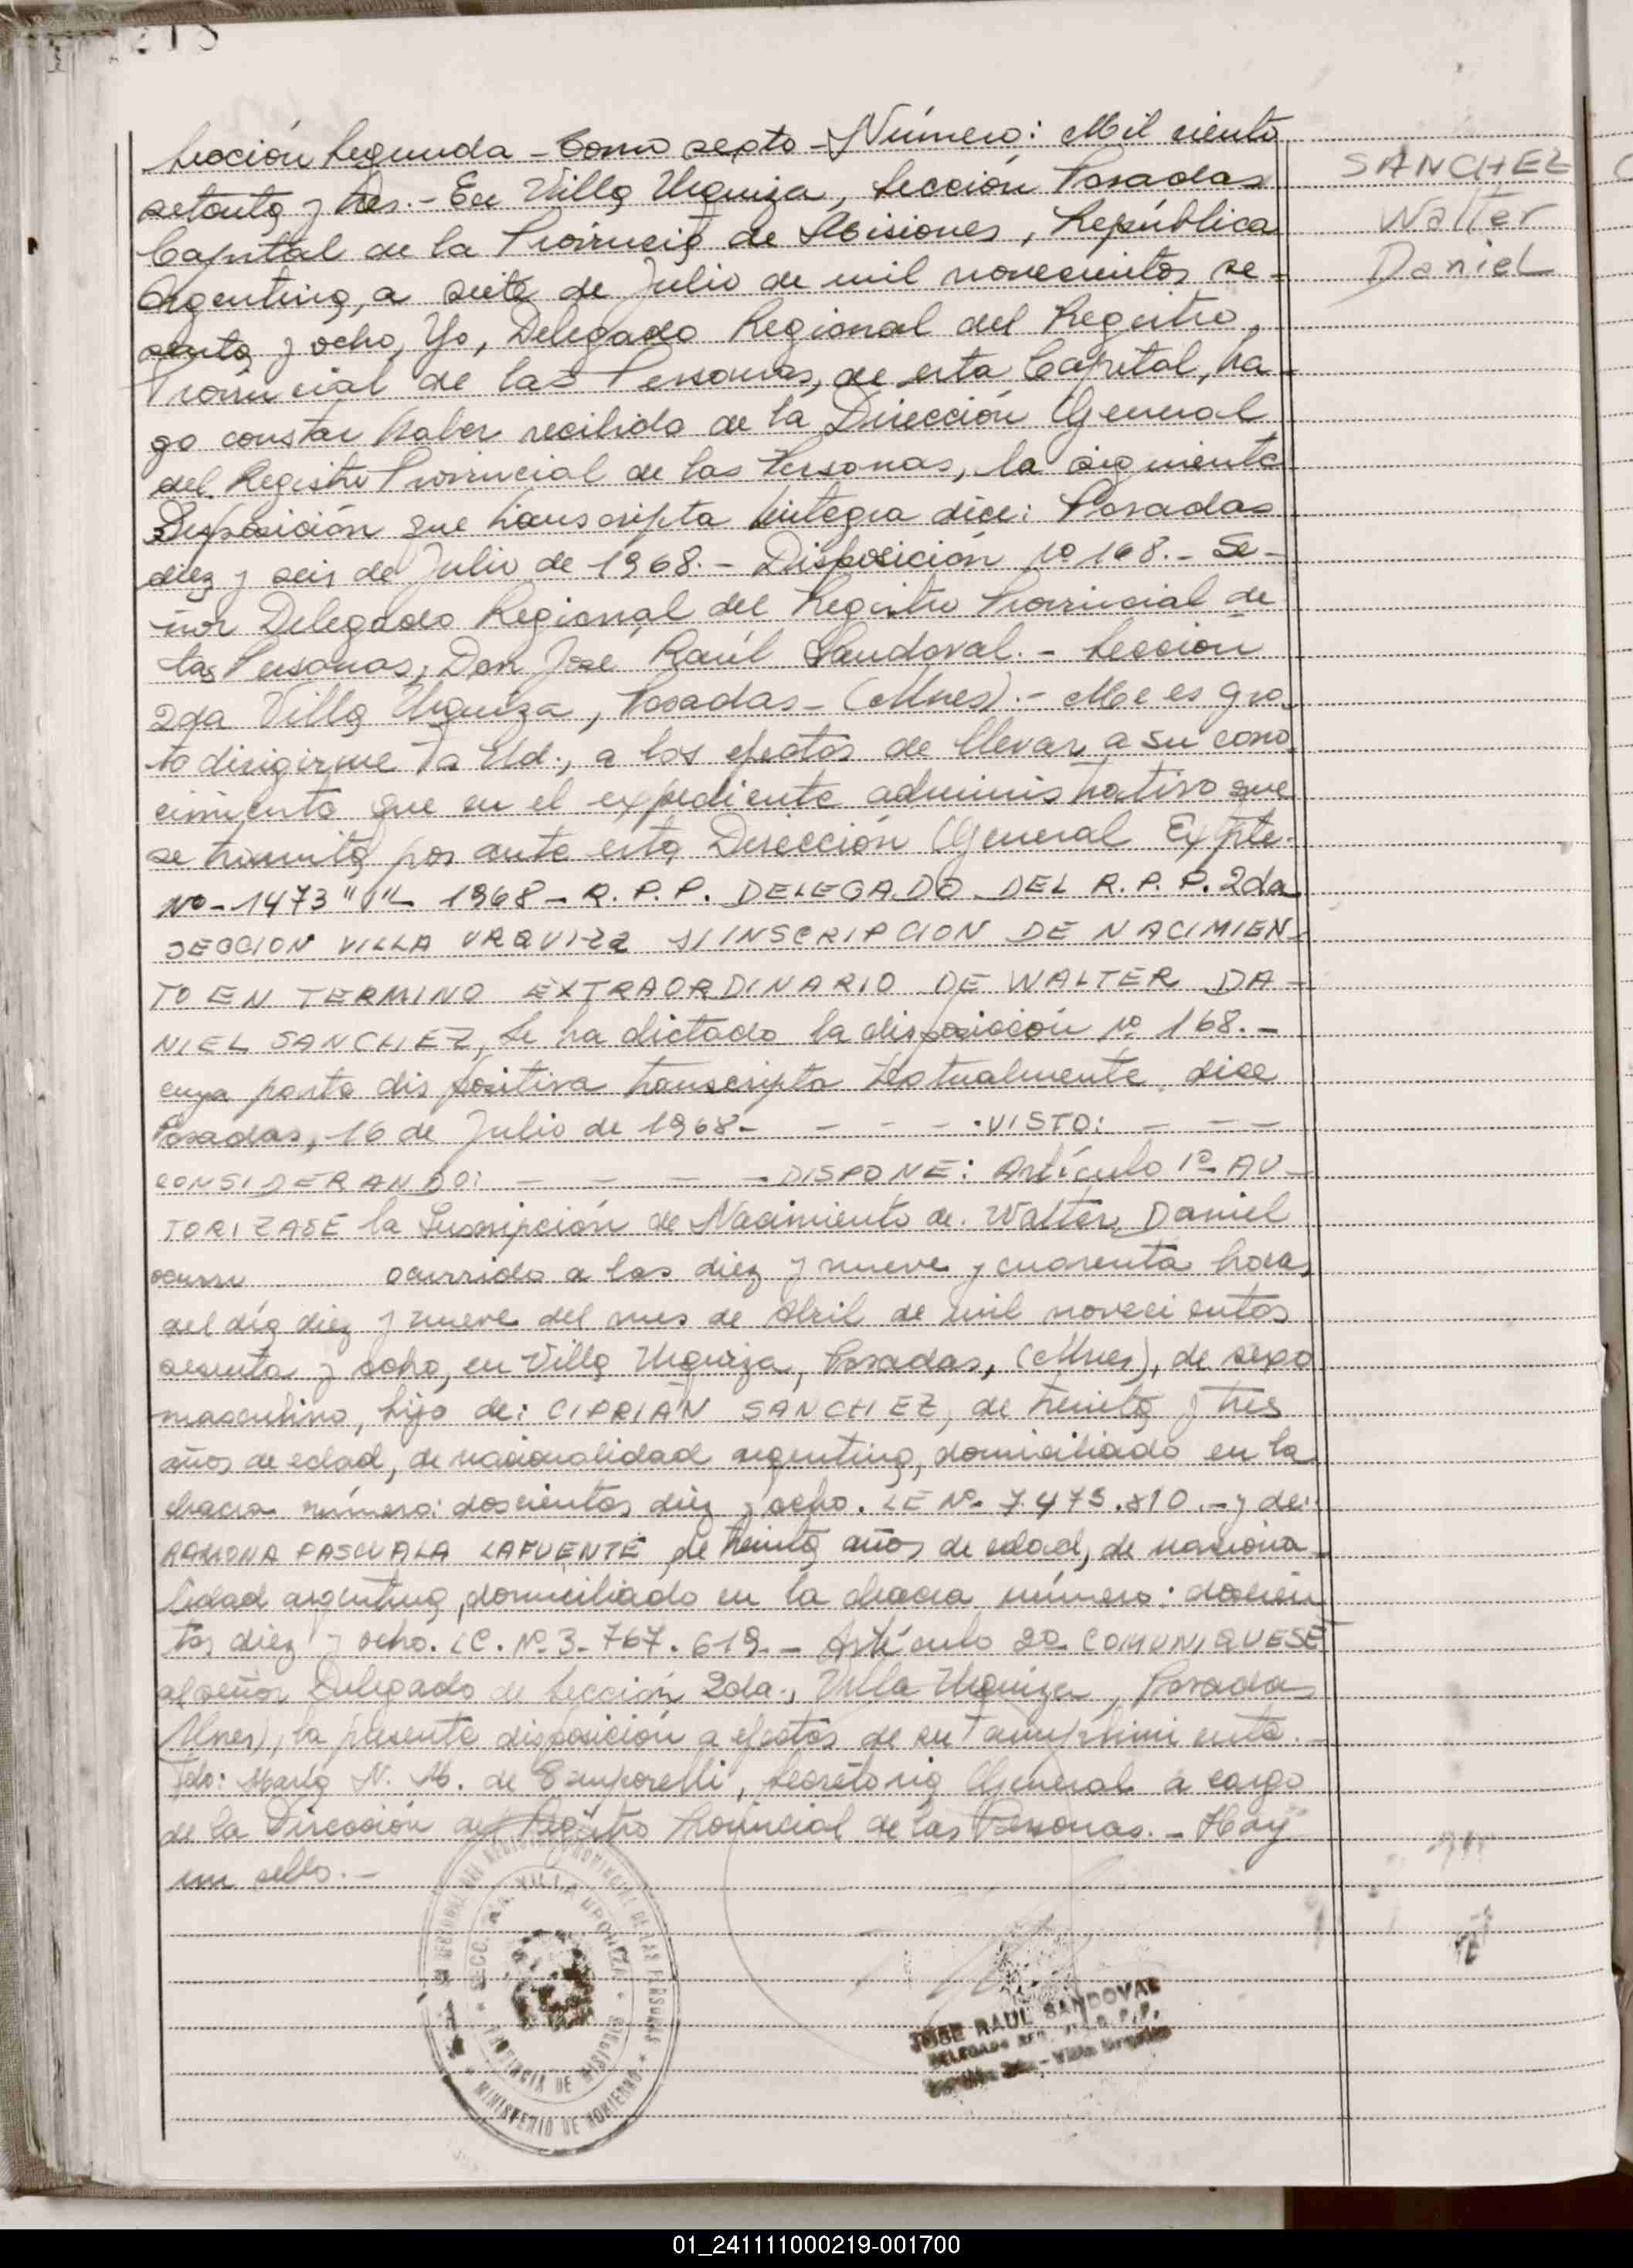 218
Sección Segunda - Tomo sexto - Número: Mil ciento
setenta y tres.- En Villa Urquiza, Sección Posadas
Capital de la Provincia de Misiones, República
Argentina, a siete de Julio de mil novecientos se-
senta y ocho, Yo, Delegado Regional del Registro
Provincial de las Personas, de esta Capital, ha-
go constar haber recibido de la Dirección General
del Registro Provincial de las Personas, la siguiente
Disposición que transcripta íntegra dice: Posadas
diez y seis de Julio de 1968.- Disposición Nº 168.- Se-
ñor Delegado Regional del Registro Provincial de
las Personas, Don José Raúl Sandoval.- Sección
2da Villa Urquiza, Posadas - (Mnes).- Me es gra-
to dirigirme a Ud., a los efectos de llevar a su cono-
cimiento que en el expediente administrativo que
se tramita por ante esta Dirección General Expte.
Nº-1473 1968 - R.P.P. DELEGADO DEL R.P.P. 2da
SECCION VILLA URQUIZA S/INSCRIPCION DE NACIMIEN-
TO EN TERMINO EXTRAORDINARIO DE WALTER DA-
NIEL SANCHEZ, Se ha dictado la disposición Nº 168.-
cuya parte dispositiva transcripta textualmente dice
Posadas, 16 de Julio de 1968- - - - - VISTO: - - -
CONSIDERANDO: - - - - - DISPONE: Artículo 1º AU-
TORIZASE la Inscripción de Nacimiento de Walter Daniel
ocurri ocurrido a las diez y nueve y cuarenta horas
del día diez y nueve del mes de Abril de mil novecientos
sesenta y ocho, en Villa Urquiza, Posadas, (Mnes), de sexo
masculino, hijo de: CIPRIAN SANCHEZ, de treinta y tres
años de edad, de nacionalidad argentina, domiciliado en la
chacra número: doscientos diez y ocho. LE Nº 7.475.810.- y de:
RAMONA PASCUALA LAFUENTE, de treinta años de edad, de naciona-
lidad argentina, domiciliado en la chacra número: doscien-
tos diez y ocho. LC. Nº 3-767.619.- Artículo 2º COMUNIQUESE
al señor Delegado de Sección 2da., Villa Urquiza, Posadas
Mnes), la presente disposición a efectos de su cumplimiento.-
Fdo: María N. M. de , Secretaria General a cargo
de la Dirección del Registro Provincial de las Personas.- Hay
un sello.-
SANCHEZ
Walter
Daniel
REGIONAL DEL REGISTRO PROVINCIAL DE LAS PERSONAS
SECC. 2da. VILLA URQUIZA
PROVINCIA DE MISIONES
MINISTERIO DE GOBIERNO
JOSE RAUL SANDOVAL
DELEGADO REG. R. P. P.
Sección 2da. - Villa Urquiza
01_241111000219-001700